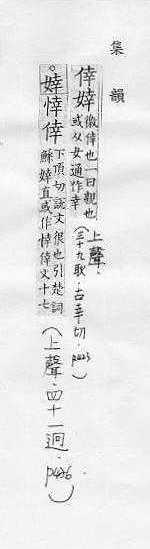 集韻
倖婞 徼倖也一曰親也
或从女通作幸
(上聲·三十九耿·古幸切·p423)
婞悻倖 下頂切說文很也引楚詞
鯀婞直或作悻倖文十七
(上聲·四十一迥·p426·)